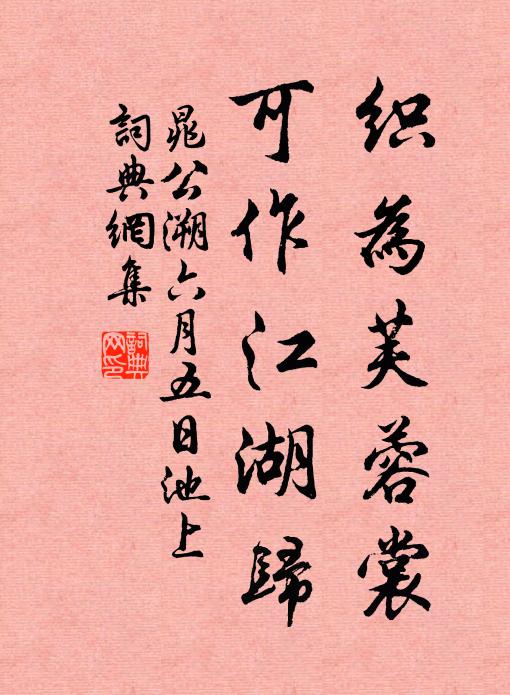 织為芙蓉裳
可作江湖歸
晁公溯六月五日池上
詞典網集
詞典网印